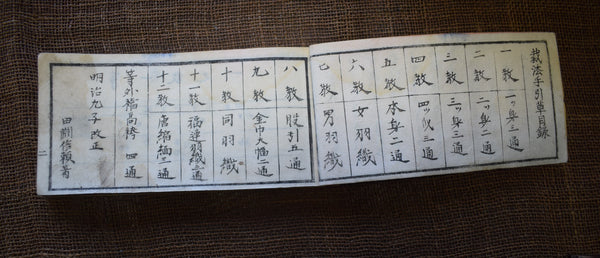 裁法手引草目録
一教 一ッ身三通
二教 二ッ身二通
三教 三ッ身三通
四教 四ッ身三通
五教 本身二通
六教 女羽織
七教 男羽織
八教 股引五通
九教 金巾大幅二通
十教 同羽織
十一教 羽織二通
十二教 唐縮緬二通
等外 高袴 四通
明治九子改正
田
二